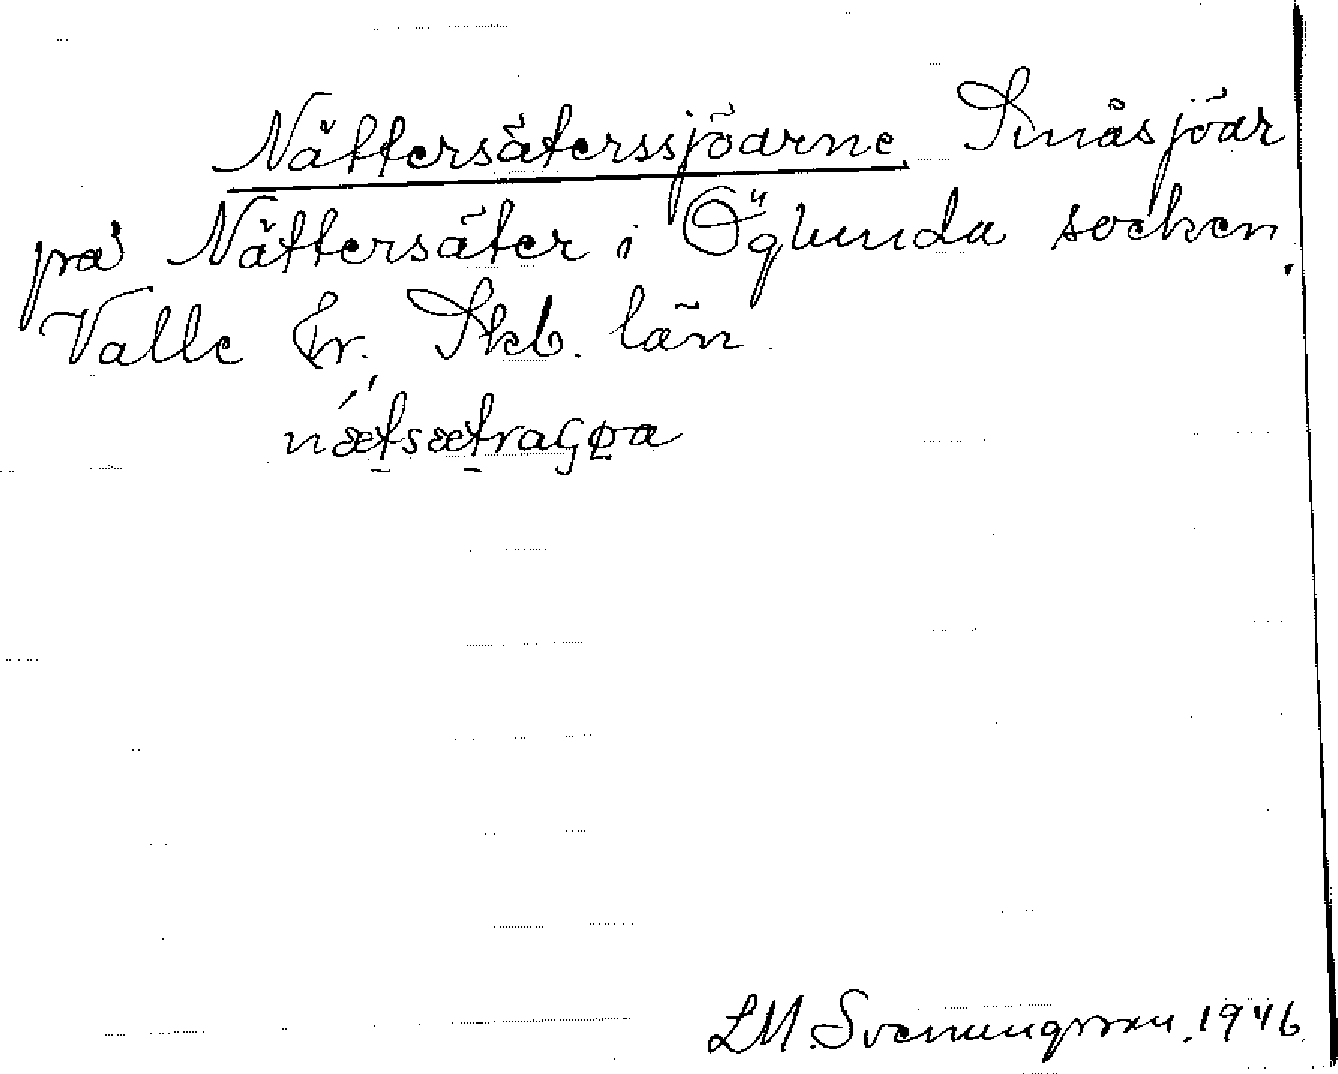 Nättersäterssjöarne Småsjöar
på Nättersäter i Öglunda socken,
Valle hr. Skb. län.
nætsætraɢøa
L.M. Svenungsson. 1946